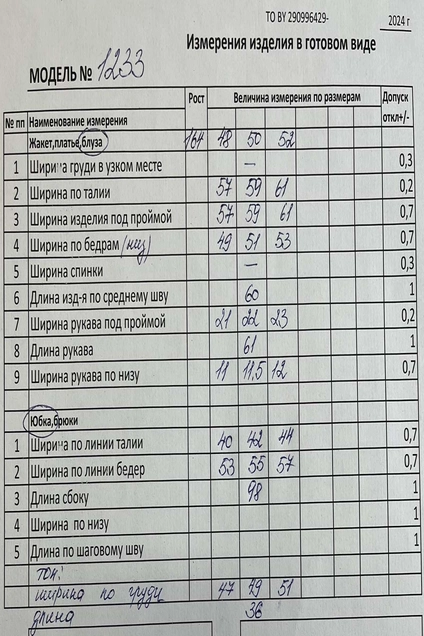 ТО BY 290996429-
2024 г
Измерения изделия в готовом виде
МОДЕЛЬ № 1233
№ пп Наименование измерения Рост Величина измерения по размерам Допуск откл+/-
Жакет,платье,блуза 164 48 50 52
1 Ширина груди в узком месте — 0,3
2 Ширина по талии 57 59 61 0,2
3 Ширина изделия под проймой 57 59 61 0,7
4 Ширина по бедрам (низ) 49 51 53 0,7
5 Ширина спинки — 0,3
6 Длина изд-я по среднему шву 60 1
7 Ширина рукава под проймой 21 22 23 0,2
8 Длина рукава 61 1
9 Ширина рукава по низу 11 11,5 12 0,7
Юбка,брюки
1 Ширина по линии талии 40 42 44 0,7
2 Ширина по линии бедер 53 55 57 0,7
3 Длина сбоку 98 1
4 Ширина по низу 1
5 Длина по шаговому шву 1
топ:
ширина по груди 47 49 51
длина 36